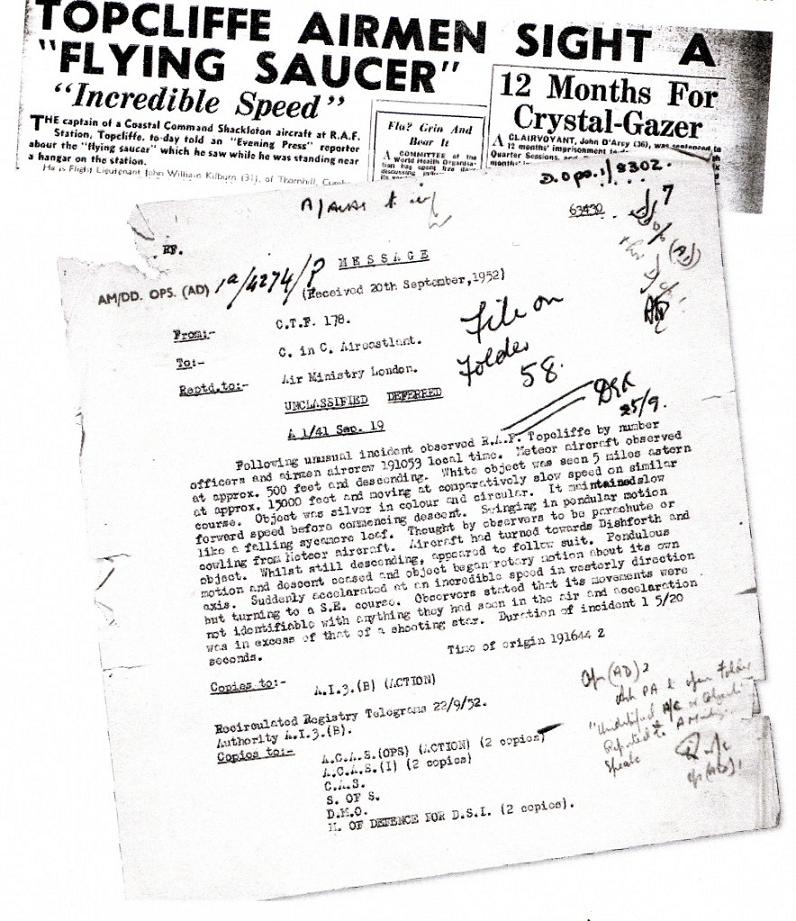 TOPCLIFFE AIRMEN SIGHT A
"FLYING SAUCER"
"Incredible Speed"
THE captain of a Coastal Command Shackleton aircraft at R.A.F.
Station, Topcliffe, to-day told an "Evening Press" reporter
about the "flying saucer" which he saw while he was standing near
a hangar on the station.
He is Flight Lieutenant John William Kilburn (31), of Thornhill,
Flu? Grin And
Bear It
A COMMITTEE of the
World Health
has spent five days
12 Months For
Crystal-Gazer
A CLAIRVOYANT, John D'Arcy (36), was sentenced to
12 months' imprisonment
Quarter Sessions,
D.Ops.1/8302.
63430
7
RF.
MESSAGE
AM/DD. OPS. (AD) 1a/4274/P
(Received 20th September,1952)
From:- C.T.F. 178.
To:- C. in C. Aireastlant.
Reptd.to:- Air Ministry London.
UNCLASSIFIED DEFERRED
A 1/41 Sep. 19
File on
Folder
58.
25/9.
Following unusual incident observed R.A.F. Topcliffe by number
officers and airmen aircrew 191053 local time. Meteor aircraft observed
at approx. 500 feet and descending. White object was seen 5 miles astern
at approx. 15000 feet and moving at comparatively slow speed on similar
course. Object was silver in colour and circular. It maintained slow
forward speed before commencing descent. Swinging in pendular motion
like a falling sycamore leaf. Thought by observers to be parachute or
cowling from Meteor aircraft. Aircraft had turned towards Dishforth and
object. Whilst still descending, appeared to follow suit. Pendulous
motion and descent ceased and object began rotary motion about its own
axis. Suddenly accelarated at an incredible speed in westerly direction
but turning to a S.E. course. Observers stated that its movements were
not identifiable with anything they had seen in the air and accelaration
was in excess of that of a shooting star. Duration of incident 1 5/20
seconds.
Time of origin 191644 Z
Copies to:- A.I.3.(B) (ACTION)
Recirculated Registry Telegrams 22/9/52.
Authority A.I.3.(B).
Copies to:- A.C.A.S.(OPS) (ACTION) (2 copies)
A.C.A.S.(I) (2 copies)
C.A.S.
S. OF S.
D.M.O.
M. OF DEFENCE FOR D.S.I. (2 copies).
Ops (AD) 2
Ask PA to open Folder
"Unidentified A/C or Objects
Reported to A Ministry
Speak